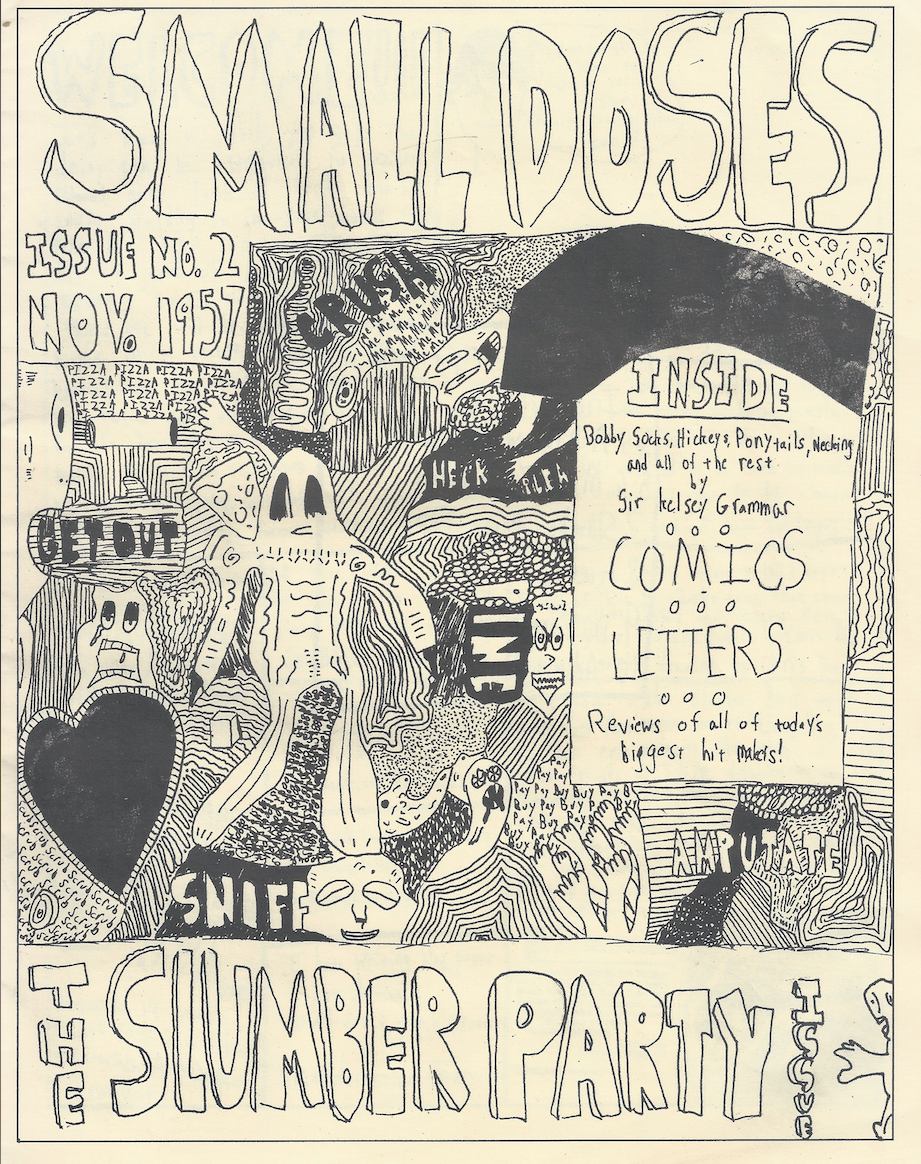 SMALL DOSES
ISSUE NO. 2
NOV. 1957
CRUSH
PIZZA PIZZA PIZZA PIZZA
PIZZA PIZZA PIZZA PIZZA
PIZZA PIZZA PIZZA PIZZA
PIZZA PIZZA PIZZA
GET OUT
HECK
PLEA
INE
INSIDE
Bobby Socks, Hickeys, Ponytails, Necking
and all of the rest
by
Sir Kelsey Grammar
COMICS
LETTERS
Reviews of all of today's
biggest hit makers!
Pay
Pay Pay
Pay Pay Buy Buy Pay B
Buy Pay Buy
SNIFF
AMPUTATE
THE SLUMBER PARTY ISSUE